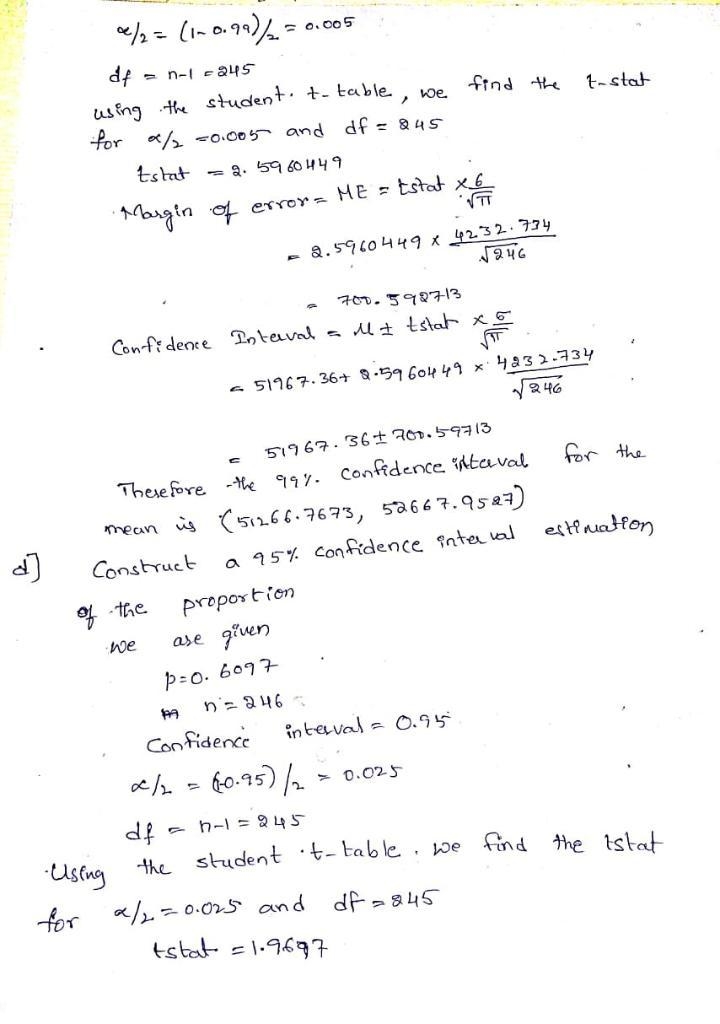 α/2 = (1-0.99)/2 = 0.005
df = n-1 = 245
using the student. t-table, we find the t-stat
for α/2 = 0.005 and df = 245
tstat = 2.5960449
Margin of error = ME = tstat × σ/√n
= 2.5960449 × 4232.734/√246
= 700.592713
Confidence Interval = M ± tstat × σ/√n
= 51967.36+ 2.5960449 × 4232.734/√246
= 51967.36 ± 700.59713
Therefore the 99% confidence interval for the
mean is (51266.7673, 52667.9527)
d] Construct a 95% confidence interval estimation
of the proportion
we are given
p=0.6097
n = 246
Confidence interval = 0.95
α/2 = (1-0.95)/2 = 0.025
df = n-1 = 245
Using the student t-table. we find the tstat
for α/2 = 0.025 and df = 245
tstat = 1.9697